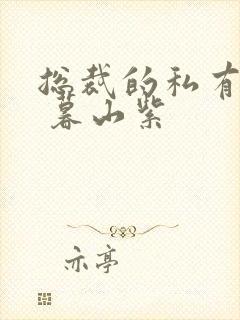 总裁的私有
暮山紫
亦亭